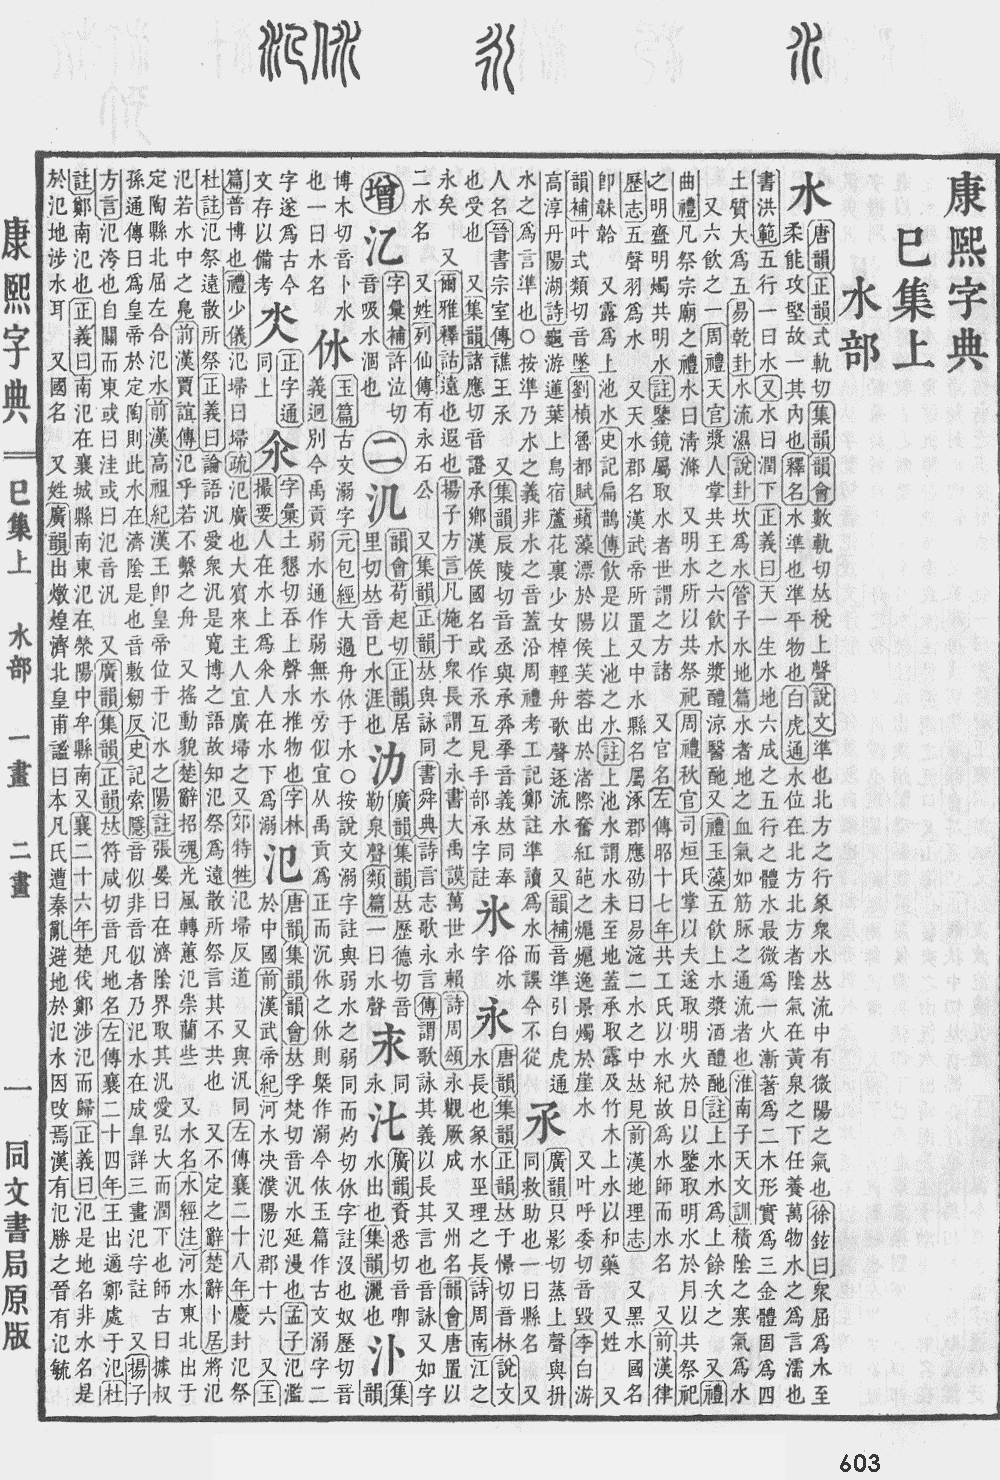 康熙字典
巳集上
水部
水 唐韻正韻式軌切集韻韻會數軌切𠀤稅上聲說文準也北方之行象衆水𠀤流中有微陽之氣也徐鉉曰衆屈爲水至
柔能攻堅故一其內也釋名水準也準平物也白虎通水位在北方北方者陰氣在黃泉之下任養萬物水之爲言濡也
書洪範五行一曰水又水曰潤下正義曰天一生水地六成之五行之體水最微爲一火漸著爲二木形實爲三金體固爲四
土質大爲五易乾卦水流濕說卦坎爲水管子水地篇水者地之血氣如筋脉之通流者也淮南子天文訓積陰之寒氣爲水
又六飮之一周禮天官漿人掌共王之六飮水漿醴涼醫酏又禮玉藻五飮上水漿酒醴酏註上水水爲上餘次之 又禮
曲禮凡祭宗廟之禮水曰淸滌 又明水所以共祭祀周禮秋官司烜氏掌以夫遂取明火於日以鑒取明水於月以共祭祀
之明齍明燭共明水註鑒鏡屬取水者世謂之方諸 又官名左傳昭十七年共工氏以水紀故爲水師而水名 又前漢律
歷志五聲羽爲水 又天水郡名漢武帝所置又中水縣名屬涿郡應劭曰易滱二水之中𠀤見前漢地理志 又黑水國名
卽韎韐 又露爲上池水史記扁鵲傳飮是以上池之水註上池水謂水未至地蓋承取露及竹木上水以和藥 又姓 又
韻補叶式類切音墜劉楨魯都賦蘋藻漂於陽侯芙蓉出於渚際奮紅葩之𤊶𤊶逸景燭於崖水 又叶呼委切音毀李白游
高淳丹陽湖詩龜游蓮葉上鳥宿蘆花裏少女棹輕舟歌聲逐流水 又韻補音準引白虎通
水之爲言準也〇按準乃水之義非水之音蓋沿周禮考工記鄭註準讀爲水而誤今不從
氶 廣韻只影切蒸上聲與抍
同救助也一曰縣名 又
人名晉書宗室傳譙王氶 又集韻辰陵切音丞與承𠬻𢩦音義𠀤同奉
也受也 又集韻諸應切音證承鄕漢侯國名或作氶互見手部承字註
氷 俗冰
字
永 唐韻集韻正韻𠀤于憬切音栐說文
水長也象水巠理之長詩周南江之
永矣 又爾雅釋詁遠也遐也揚子方言凡施于衆長謂之永書大禹謨萬世永賴詩周頌永觀厥成 又州名韻會唐置以
二水名 又姓列仙傳有永石公 又集韻正韻𠀤與詠同書舜典詩言志歌永言傳謂歌詠其義以長其言也音詠又如字
增
氾 字彙補許泣切
音吸水涸也
二
氿 韻會苟起切正韻居
里切𠀤音巳水涯也
氻 廣韻集韻𠀤歷德切音
勒泉聲類篇一曰水聲
求 同
永
𣱱 廣韻資悉切音喞
水出也集韻灑也
汴 集
韻
博木切音卜水名
也一曰水名
㲻 玉篇古文溺字元包經大過舟㲻于水〇按說文溺字註與弱水之弱同而灼切㲻字註沒也奴歷切音
義迥別今禹貢弱水通作弱無水旁似宜从禹貢爲正而沉㲻之㲻則槩作溺今依玉篇作古文溺字二
字遂爲古今
文存以備考
㲼 正字通
同上
氽 字彙土懇切吞上聲水推物也字林
撮要人在水上爲氽人在水下爲溺
氾 唐韻集韻韻會𠀤孚梵切音汎水延漫也孟子氾濫
於中國前漢武帝紀河水決濮陽氾郡十六 又玉
篇普博也禮少儀氾埽曰埽疏氾廣也大賓來主人宜廣埽之又郊特牲氾埽反道 又與汎同左傳襄二十八年慶封氾祭
杜註氾祭遠散所祭正義曰論語汎愛衆汎是寬博之語故知氾祭爲遠散所祭言其不共也 又不定之辭楚辭卜居將氾
氾若水中之鳧前漢賈誼傳氾乎若不繫之舟 又搖動貌楚辭招魂光風轉蕙氾崇蘭些 又水名水經注河水東北出于
定陶縣北屈左合氾水前漢高祖紀漢王卽皇帝位于氾水之陽註張晏曰在濟陰界取其汎愛弘大而潤下也師古曰據叔
孫通傳曰爲皇帝於定陶則此水在濟陰是也音敷劒反史記索隱音似非音似者乃汜水在成臯詳三畫汜字註 又揚子
方言氾洿也自關而東或曰洼或曰氾音汎 又廣韻集韻正韻𠀤符咸切音凡地名左傳襄二十四年王出適鄭處于氾杜
註鄭南氾也正義曰南氾在襄城縣南東氾在滎陽中牟縣南又襄二十六年楚伐鄭涉氾而歸正義曰氾是地名非水名是
於氾地涉水耳 又國名 又姓廣韻出燉煌濟北皇甫謐曰本凡氏遭秦亂避地於氾水因改焉漢有氾勝之晉有氾毓
康熙字典 巳集上 水部 一畫 二畫 一 同文書局原版
603